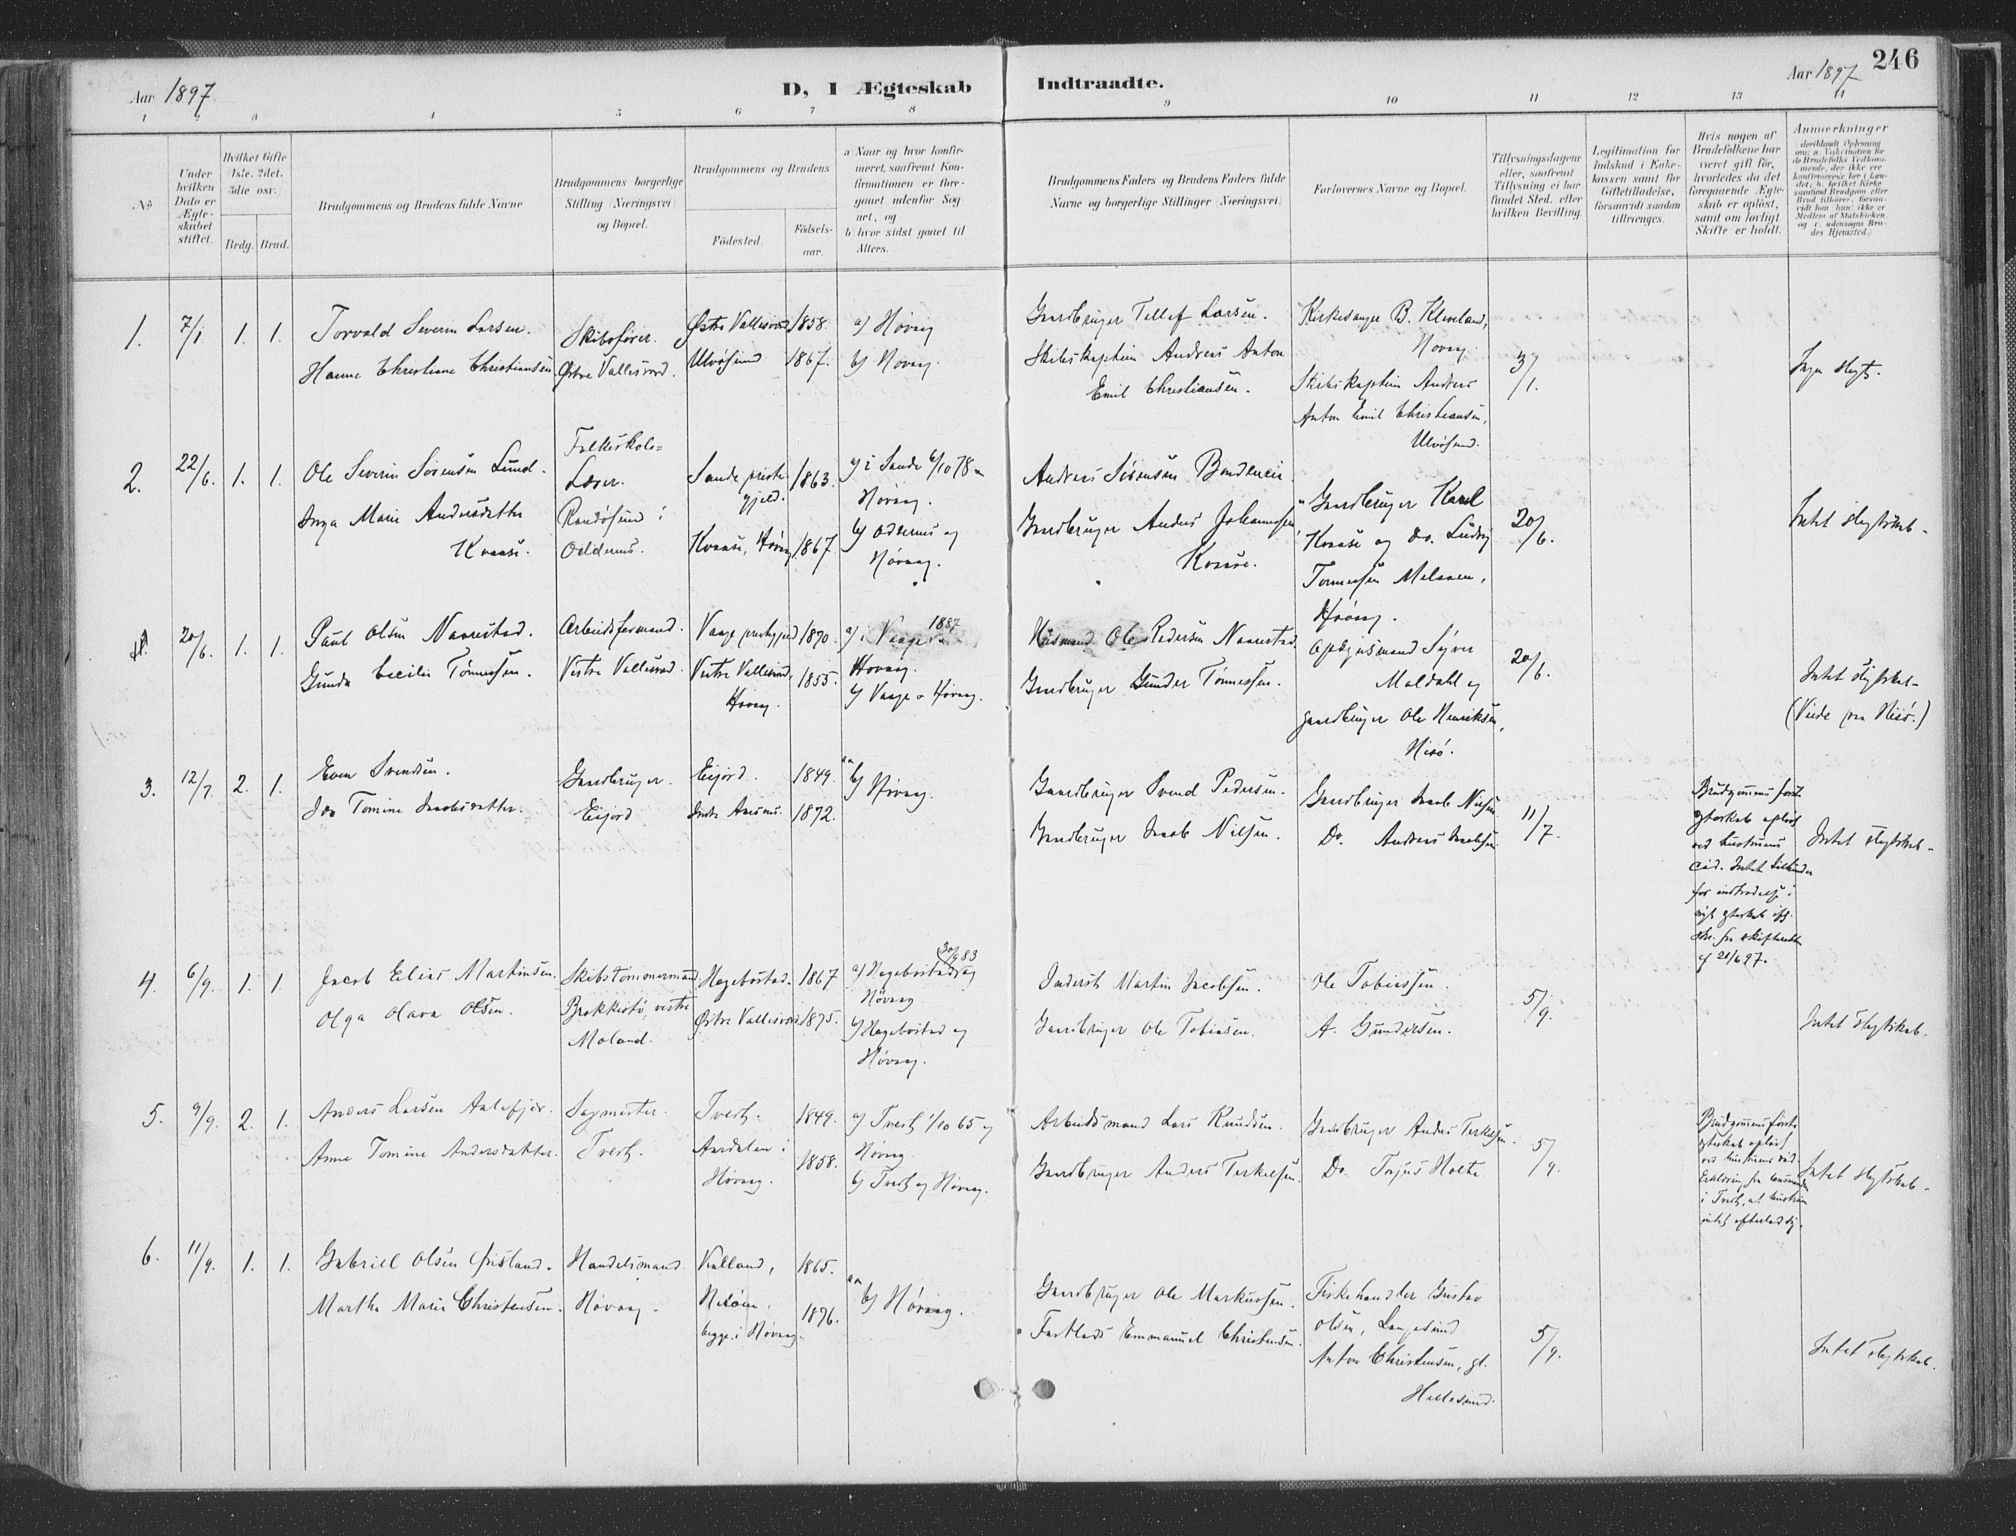 Aar 1897.
D, I Ægteskab Indtraadte.
Aar 1897
246
1 2 3 4 5 6 7 8 9 10 11 12 13 14
No
Under hvilken Dato er Ægteskabet stiftet.
Hvilket Gifte (1ste, 2det, 3die osv.
Brdg. Brud.
Brudgommens og Brudens fulde Navne
Brudgommens borgerlige Stilling (Næringsvei) og Bopæl.
Brudgommens og Brudens
Födested.
Födselsaar.
a) Naar og hvor konfirmeret, saafremt Konfirmationen er foregaaet udenfor Sognet, og
b) hvor sidst gaaet til Alters.
Brudgommens Faders og Brudens Faders fulde Navne og borgerlige Stillinger (Næringsvei)
Forlovernes Navne og Bopæl.
Tillysningsdagene eller, saafremt Tillysning ei har fundet Sted, efter hvilken Bevilling.
Legitimation for Indskud i Enkekassen samt for Giftetilladelse, forsaavidt saadan tiltrænges.
Hvis nogen af Brudefolkene har været gift för, hvorledes da det foregaaende Ægteskab er oplöst, samt om lovligt Skifte er holdt.
Anmerkninger
1. 7/1 1. 1.
Torvald Severin Larsen.
Hanne Christiane Christiansen
Skibsfører.
Østre Vallesværd.
Østre Vallesværd 1858.
Ulvøsund 1867.
a) Høvaag
b) Høvaag.
Gaardbruger Tellef Larsen.
Skibskaptein Andreas Anton
Emil Christiansen.
Kirkesanger B. Kleveland,
Høvaag.
Skibskaptein Andreas
Anton Emil Christiansen,
Ulvøsund.
3/1.
Ingen slegts.
2. 22/6. 1. 1.
Ole Severin Sørensen Lund.
Inga Marie Andersdatter
Kvaase.
Folkeskole-
Lærer.
Randøsund i
Oddernes.
Sande præste-
gjeld. 1863.
Kvaase, Høvaag 1867.
a) i Sande 6/10 78
Høvaag.
b) Oddernes og
Høvaag.
Andreas Sørensen
Gaardbruger Anders Johannesen
Kvaase.
Gaardbruger Karel
Kvaase og Do. Ludvig
Tønnesen
Høvaag.
20/6.
Intet slegtskab.
20/6. 1. 1.
Paul Olsen Naarestad.
Gunda Cecilie Tønnessen.
Arbeidsformand.
Vestre Vallesværd.
Vaage prestegjeld 1870.
Vestre Vallesværd, 1855.
Høvaag.
a) i Vaage 1887
Høvaag.
b) Vaage o Høvaag.
Husmand Ole Pedersen Naarestad.
Gaardbruger Gunder Tønnessen.
Opsynsmand Syver
Moldahl og
gaardbruger Ole Henriksen,
Hisø.
20/6.
Intet slegtskab
(Viede paa Hisø.)
3. 12/7 2. 1.
Even Svendsen.
Ida Tomine Jacobsdatter.
Gaardbruger.
Eijord
Eijord. 1849.
Indre Aarsnes. 1872.
b) Høvaag.
Gaardbruger Svend Pedersen.
Gaardbruger Jacob Nilsen.
Gaardbruger Jacob Nilsen
Do. Andreas Jacobsen
11/7.
Brudgommens første
egteskab opløst
ved hustruens
død. Intet til hinder
for indtrædelse i
nyt egteskab ifg.
skr. fra skifteretten
af 21/6 97.
Intet slegtskab.
4. 6/9. 1. 1.
Jacob Elias Martinsen.
Olga Olava Olsen.
Skibstømmermand.
Brækkestø, vestre
Moland.
Hægebostad. 1867
Østre Vallesværd 1875.
a) Hægebostad 30/9 83 og
Høvaag
b) Hægebostad og
Høvaag.
Inderst Martin Jacobsen.
Gaardbruger Ole Tobiasen.
Ole Tobiassen.
A. Gundersen.
5/9.
Intet slegtskab.
5. 9/9. 2. 1.
Anders Larsen Aalefjær.
Anne Tomine Andersdatter.
Sagmester.
Tveit.
Tveit. 1849.
Aardalen i 1858.
Høvaag.
a) Tveit 1/10 65 og
Høvaag
b) Tveit og Høvaag.
Arbeidsmand Lars Knudsen.
Gaardbruger Anders Terkelsen.
Gaardbruger Anders Terkelsen.
Do. Terjus Holte
5/9.
Brudgommens første
egteskab opløst
ved hustruens død.
Erklæring fra lensmanden
i Tveit, at hustruen
intet efterlod sig.
Intet slegtskab.
6. 11/9. 1. 1.
Gabriell Olsen Øisland.
Martha Marie Christensen.
Handelsmand.
Høvaag.
Kalland, 1865.
1876.
begge i Høvaag
b) Høvaag.
Gaardbruger Ole Markussen.
Fastlods Emmanuel Christensen.
Fiskehandler Gustav
Olsen, Langesund
Anton Christensen, gl.
Hellesund.
5/9.
Intet slegtskab.